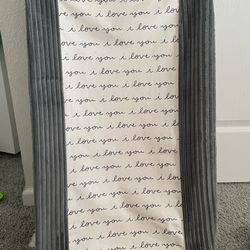 i love you i love you
i love you i love you
love you i love you i
you i love you i love you
i love you i love you i
love you i love you i love
you i love you i love you
i love you i love you i
love you i love you i love
you i love you i love you
i love you i love you i
love you i love you i love
you i love you i love you
i love you i love you i
love you i love you i love
you i love you i love you
i love you i love you